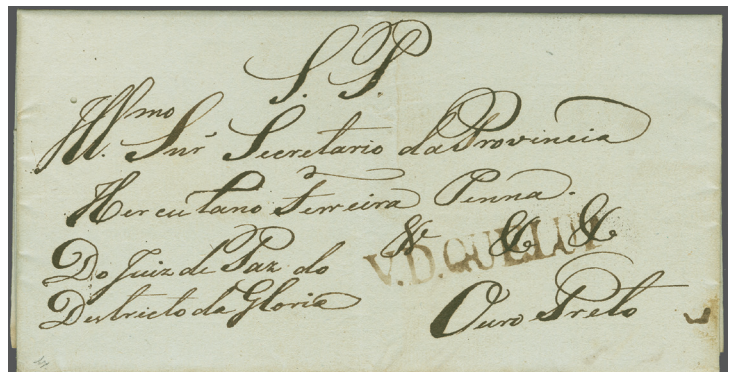 S. P.
Illmo. Snr. Secretario da Provincia
Herculano Ferreira Penna.
& & &
V. D. QUELUZ
Do Juiz de Paz do
Destricto da Gloria
Ouro Preto